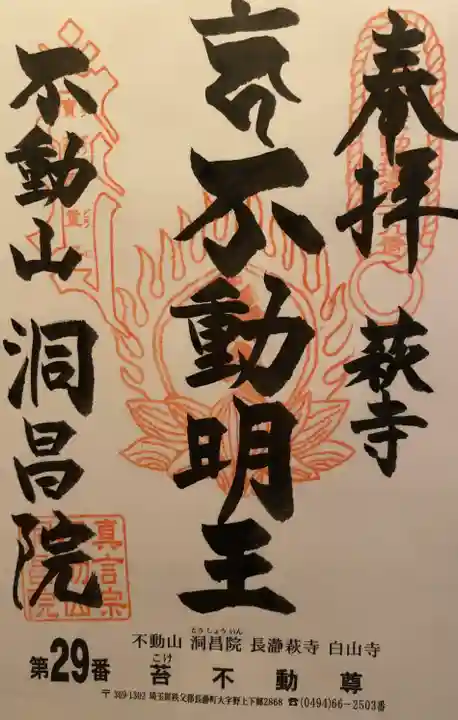 奉拝
萩寺
不動明王
不動山 洞昌院
真言宗
不動山 洞昌院 長瀞萩寺 白山寺
とうしょういん
第29番 苔不動尊
こけ
〒369-1302 埼玉県秩父郡長瀞町大字野上下郷2868 ☎(0494)66-2503番